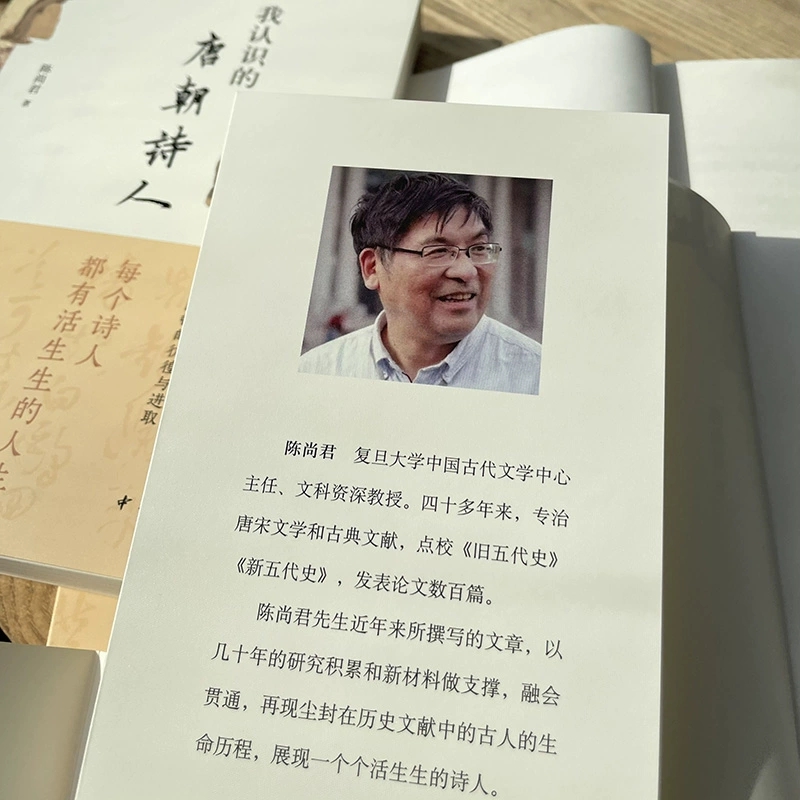 我认识的
唐朝诗人
陈尚君 著
每个诗人
都有活生生的人生
徨与进取
中
陈尚君 复旦大学中国古代文学中心
主任、文科资深教授。四十多年来，专治
唐宋文学和古典文献，点校《旧五代史》
《新五代史》，发表论文数百篇。
陈尚君先生近年来所撰写的文章，以
几十年的研究积累和新材料做支撑，融会
贯通，再现尘封在历史文献中的古人的生
命历程，展现一个个活生生的诗人。